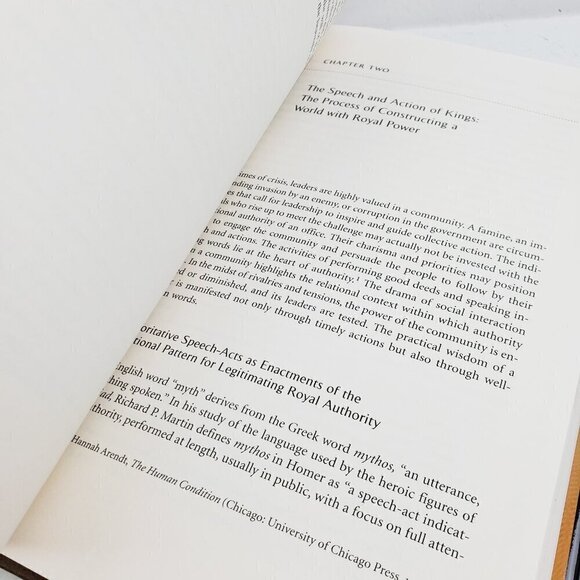 CHAPTER TWO
The Speech and Action of Kings:
The Process of Constructing a
World with Royal Power
imes of crisis, leaders are highly valued in a community. A famine, an im-
nding invasion by an enemy, or corruption in the government are circum-
es that call for leadership to inspire and guide collective action. The indi-
ls who rise up to meet the challenge may actually not be invested with the
ional authority of an office. Their charisma and priorities may position
to engage the community and persuade the people to follow by their
h and actions. The activities of performing good deeds and speaking in-
ng words lie at the heart of authority.¹ The drama of social interaction
n a community highlights the relational context within which authority
. In the midst of rivalries and tensions, the power of the community is en-
d or diminished, and its leaders are tested. The practical wisdom of a
is manifested not only through timely actions but also through well-
n words.
oritative Speech-Acts as Enactments of the
tional Pattern for Legitimating Royal Authority
English word “myth” derives from the Greek word mythos, “an utterance,
hing spoken.” In his study of the language used by the heroic figures of
ad, Richard P. Martin defines mythos in Homer as “a speech-act indicat-
thority, performed at length, usually in public, with a focus on full atten-
Hannah Arendt, The Human Condition (Chicago: University of Chicago Press,